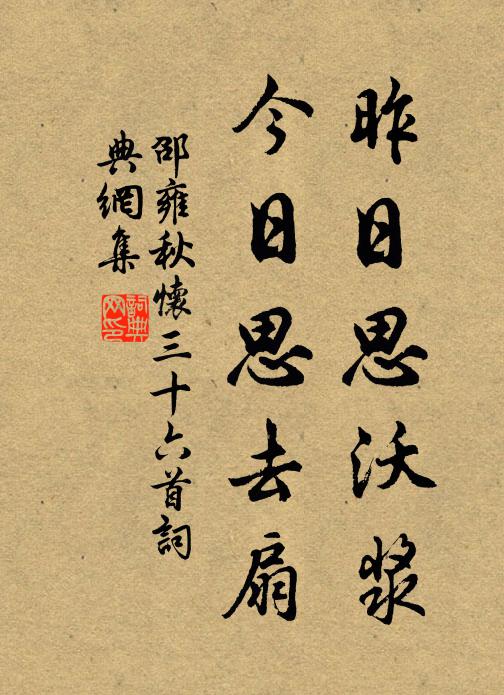 昨日思沃漿
今日思去扇
邵雍秋懷三十六首詞
典網集
詞典网印